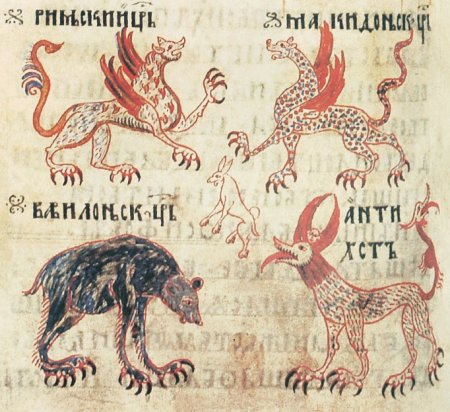 РИМЬСКИИ ЦР҃Ь
МАКИДОНЬСК ЦР҃Ь
ВАВИЛОНЬСК ЦР҃Ь
АНТИ
ХСТЪ